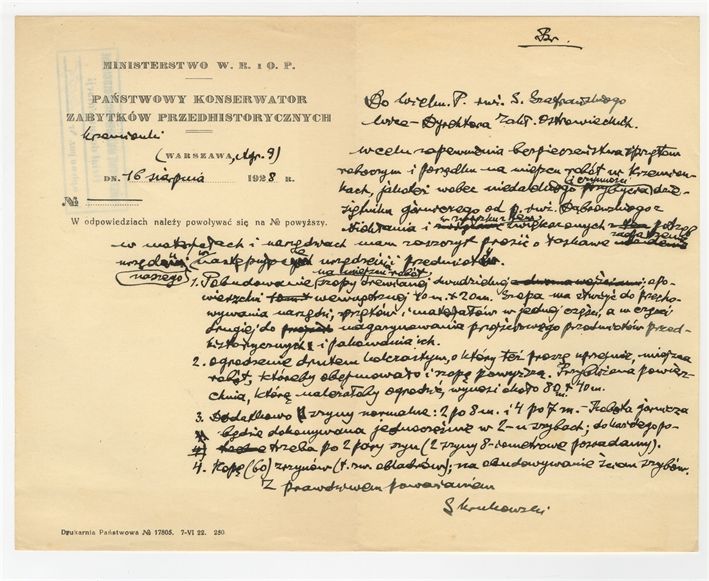 Br.
MINISTERSTWO W. R. i O. P.
PAŃSTWOWY KONSERWATOR
ZABYTKÓW PRZEDHISTORYCZNYCH
Krzemionki
(WARSZAWA, Agr. 9)
DN. 16 sierpnia 1928 R.
№
W odpowiedziach należy powoływać się na № powyższy.
Do Wielm. P. inż. S.
Wice-Dyrektora Zakł. Ostrowieckich.
W celu zapewnienia bezpieczeństwa sprzętom
roboczym i porządku na miejscu robót w Krzemion-
kach, jakoteż wobec niedalekiego przybycia dzie-
siętnika górniczego od p. inż. Dąbrowskiego z
zwiększonych potrzeb
w materjałach i narzędziach mam zaszczyt prosić o łaskawe
naszego następujących urządzeń i przedmiotów.
na miejscu robót
1. Pobudowanie szopy drewnianej, dwudzielnej o po-
wierzchni wewnętrznej 10 m. x 20 m. Szopa ma służyć do przecho-
wywania narzędzi, sprzętów i materjałów w jednej części, a w części
drugiej do magazynowania przedmiotów przed-
historycznych i pakowania ich.
2. Ogrodzenie drutem kolczastym, o który też proszę uprzejmie, miejsca
robót, któreby obejmowało i szopę powyższą. Przybliżona powierz-
chnia, którą należałoby ogrodzić, wynosi około 80 m x 40 m.
3. Dodatkowo szyny normalne: 2 po 8 m. i 4 po 7 m. - Robota górnicza
będzie dokonywana jednocześnie w 2-u szybach; do każdego po-
trzeba po 2 pary szyn (2 szyny 8-iometrowe posiadamy).
4. Kopę (60) zrzynów (t. zw. okładków); na obudowywanie ścian szybów.
Z prawdziwem poważaniem
S Krukowski
Drukarnia Państwowa № 17805. 7-VI 22. 250.